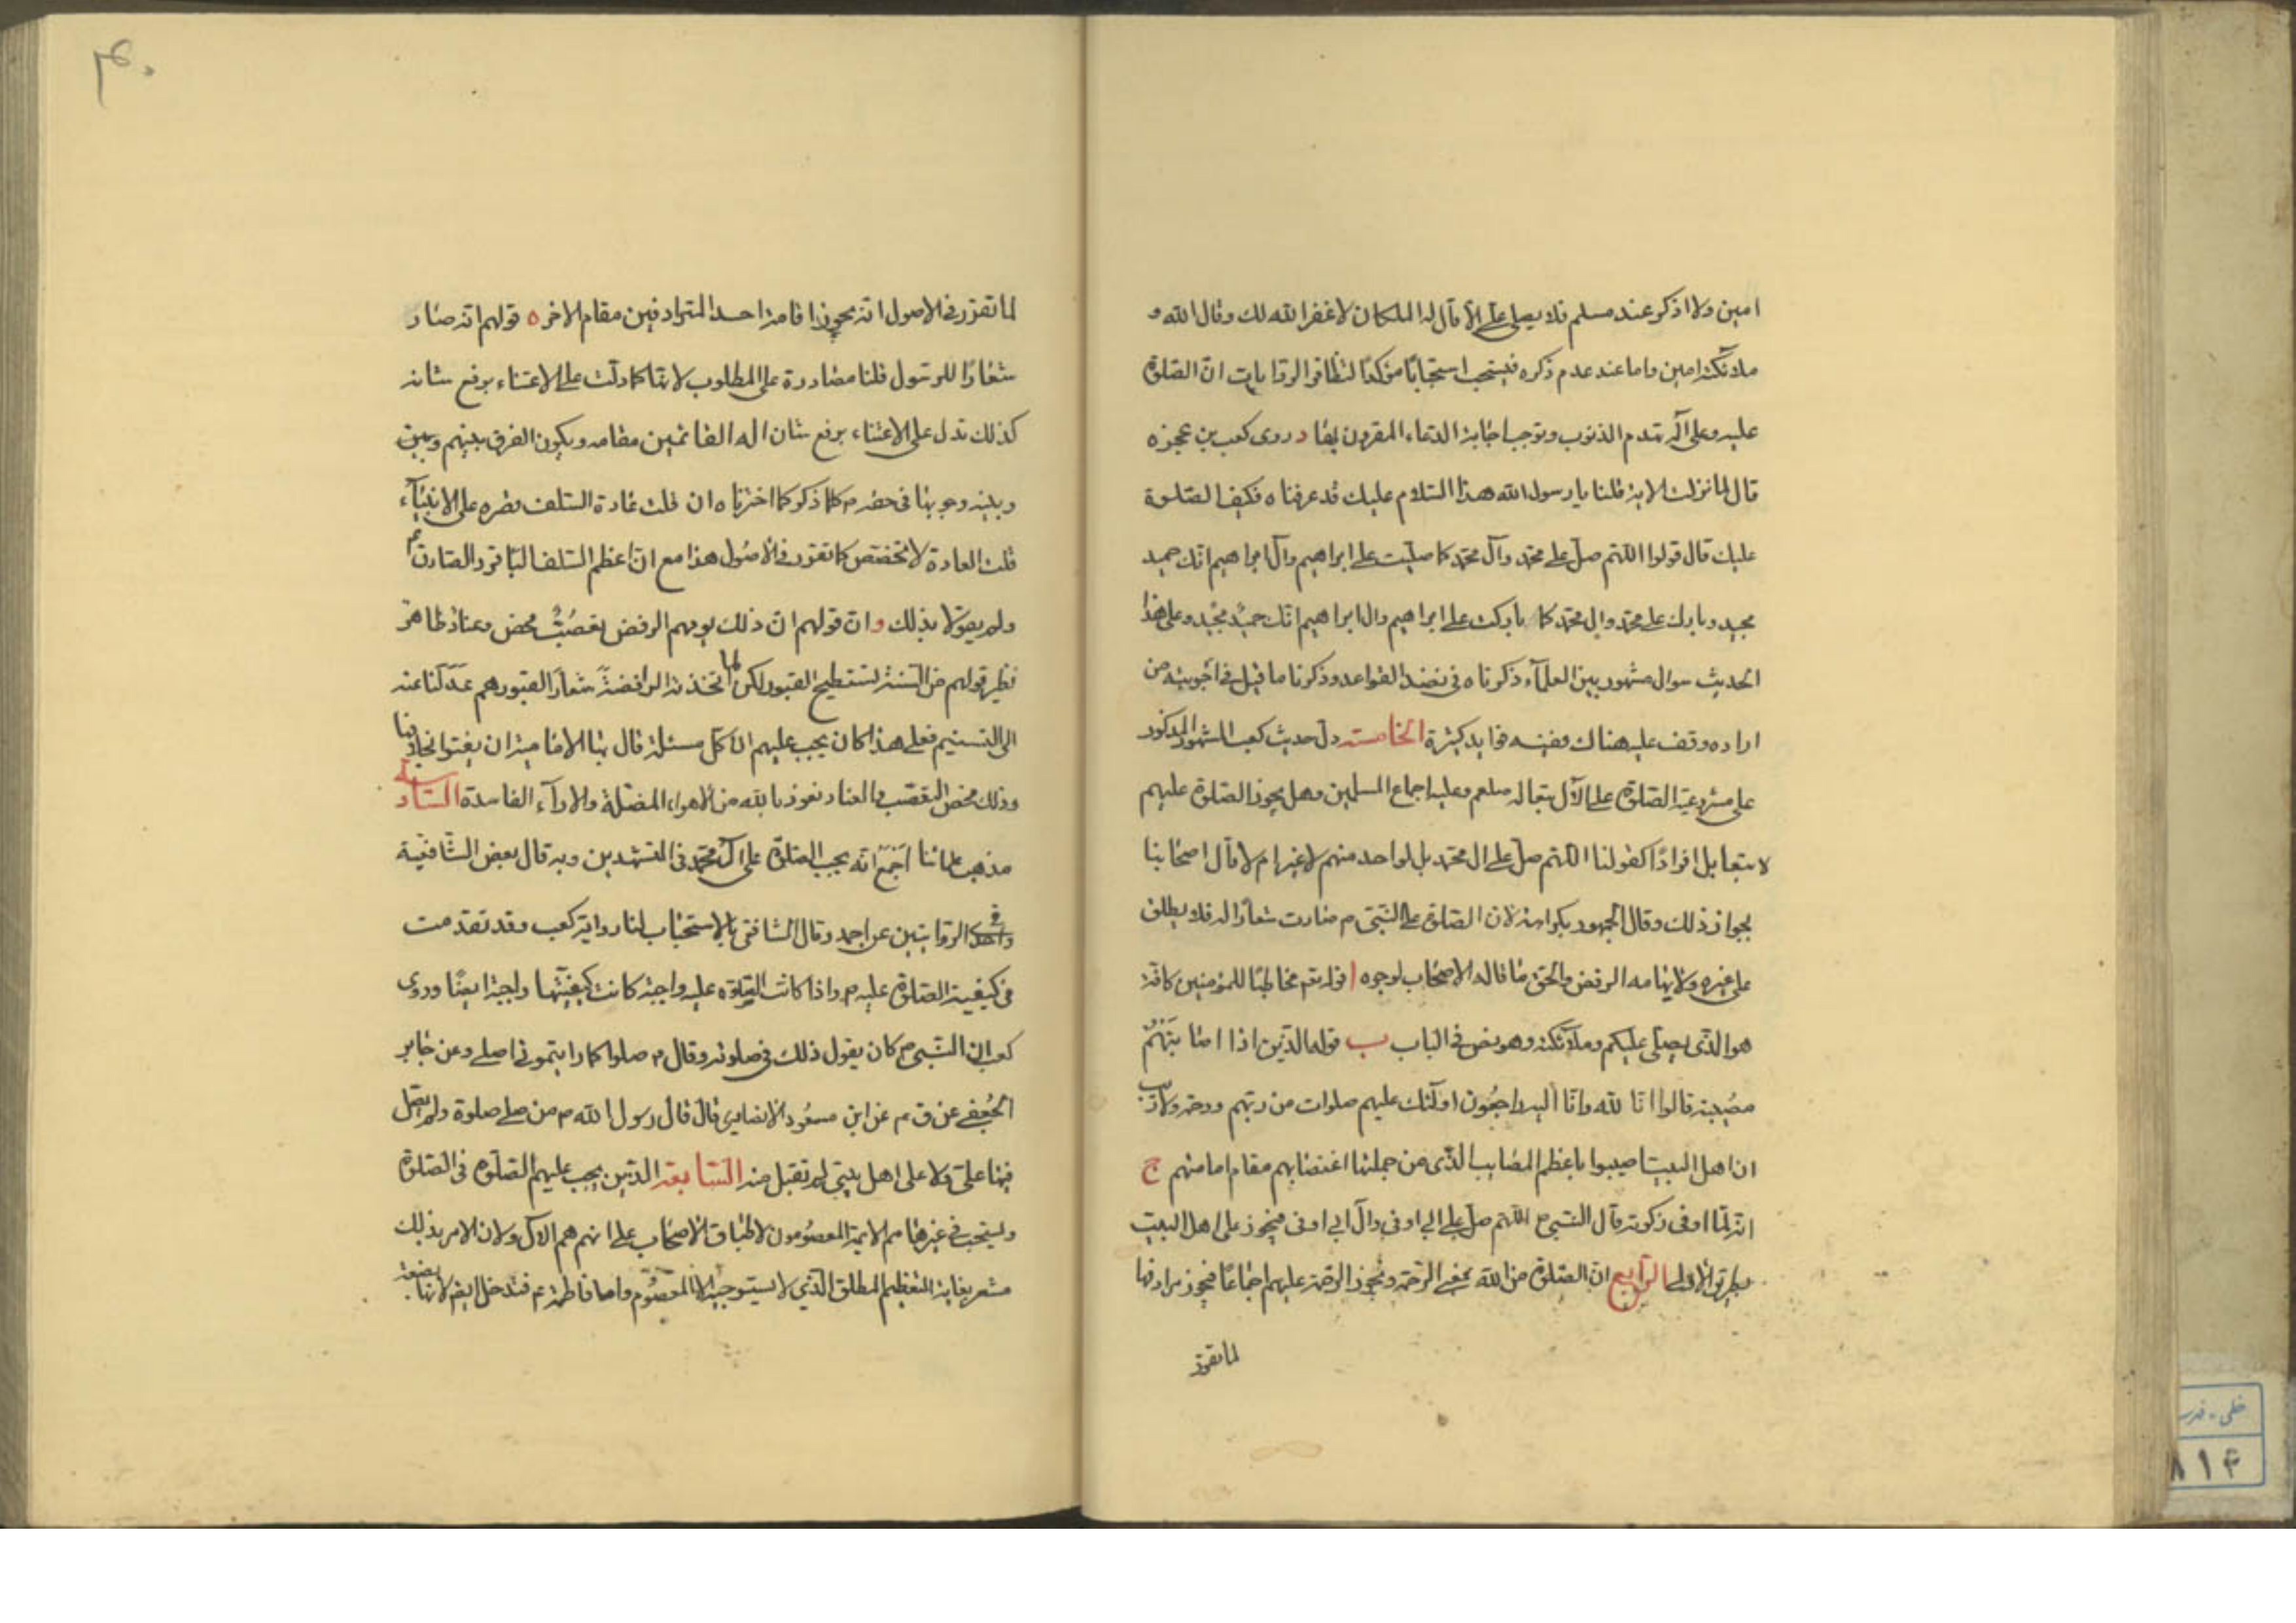 امين ولا اذكر عند مسلم فلا يصلى علىّ الا قال له الملكان لا غفر الله لك وقال الله و
ملائكته امين واما عند عدم ذكره فيستحب استحبابًا مؤكدًا لتظافر الروايات ان الصلوة
عليه وعلى آله تهدم الذنوب وتوجب اجابة الدعاء المقرون بها د روى كعب بن عجزه
قال لما نزلت الاية قلنا يا رسول الله هذا السلام عليك قد عرفناه فكيف الصلوة
عليك قال قولوا اللهم صل على محمد وآل محمد كما صليت على ابراهيم وآل ابراهيم انك حميد
مجيد وبارك على محمد وال محمد كما باركت على ابراهيم وال ابراهيم انك حميد مجيد وعلى هذا
الحديث سوال مشهور بين العلمآء ذكرناه فى نضد القواعد وذكرنا ما قيل فى اجوبته من
اراده وقف عليه هناك وفيه فوايد كثيرة الخامسة دل حديث كعب المشهور المذكور
على مشروعية الصلوة على الآل تبعا له صلعم وعليه اجماع المسلمين وهل يجوز الصلوة عليهم
لا تبعا بل افرادًا كقولنا اللهم صل على ال محمد بل لواحد منهم لا غير ام لا قال اصحابنا
بجواز ذلك وقال الجمهور بكراهته لان الصلوة على النبى م صارت شعارًا له فلا يطلق
على غيره ولايهامه الرفض والحق ما قاله الاصحاب لوجوه ا قوله تعم مخاطبًا للمؤمنين كافة
هو الذى يصلى عليكم وملائكته وهو نص فى الباب ب قوله الذين اذا اصابتهم
مصيبة قالوا انا لله وانا اليه راجعون اولئك عليهم صلوات من ربهم ورحمة ولا ريب
ان اهل البيت اصيبوا باعظم المصايب الذى من جملتها اغتصابهم مقام امامتهم ج
انه لما اوفى زكوته قال النبى م اللهم صل على ابى اوفى وال ابى اوفى فيجوز على اهل البيت
بطريق الاولى الرابع ان الصلوة من الله بمعنى الرحمة ويجوز الرحمة عليهم اجماعًا فيجوز مرادفها
لما تقرر
۴۰
لما تقرر فى الاصول انه يجوز اقامة احد المترادفين مقام الاخر ه قولهم انه صار
شعارًا للرسول قلنا مصادرة على المطلوب لانها كما دلت على الاعتناء برفع شانه
كذلك تدل على الاعتناء برفع شان اله القائمين مقامه ويكون الفرق بينهم وبين
وبينه وجوبها فى حقه م كلما ذكر كما اخترناه ان قلت عادة السلف قصره على الانبيآء
قلت العادة لا تخصص كما تقرر فى الاصول هذا مع ان اعظم السلف الباقر والصادق عم
ولم يقولا بذلك و ان قولهم ان ذلك يوهم الرفض تعصُّب محض وعناد ظاهر
نظير قولهم من السنة تسطيح القبور لكن لما اتخذته الرافضة شعارًا لقبورهم عدلنا عنه
الى التسنيم فعلى هذا كان يجب عليهم ان كل مسئلة قال بها الامامية ان يفتوا بخلافها
وذلك محض التعصب والعناد نعوذ بالله من الاهواء المضلة والاراء الفاسدة السادسة
مذهب علمائنا اجمع انه يجب الصلوة على آل محمد فى التشهدين وبه قال بعض الشافعية
وفى الروايتين عن احمد وقال الشافعى بالاستحباب لنا رواية كعب وقد تقدمت
فى كيفية الصلوة عليه م واذا كانت الصلوة عليه واجبة كانت كيفيتها واجبة ايضًا وروى
كعب ان النبى م كان يقول ذلك فى صلوته وقال م صلوا كما رايتمونى اصلى وعن جابر
الجعفى عن ق عم عن ابن مسعود الانصارى قال قال رسول الله م من صلى صلوة ولم يصل
فيها علىّ ولا على اهل بيتى لم تقبل منه السابعة الذين يجب عليهم الصلوة فى الصلوة
ويستحب فى غيرها هم الايمة المعصومون لاطباق الاصحاب على انهم هم الال ولان الامر بذلك
مشعر بغاية التعظيم المطلق الذى لا يستوجبه الا المعصوم واما فاطمة عم فتدخل ايضم لانها بضعة
۸۱۴